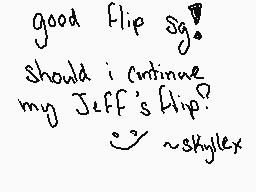 good flip sg!
should i continue
my Jeff's flip?
~skyllex